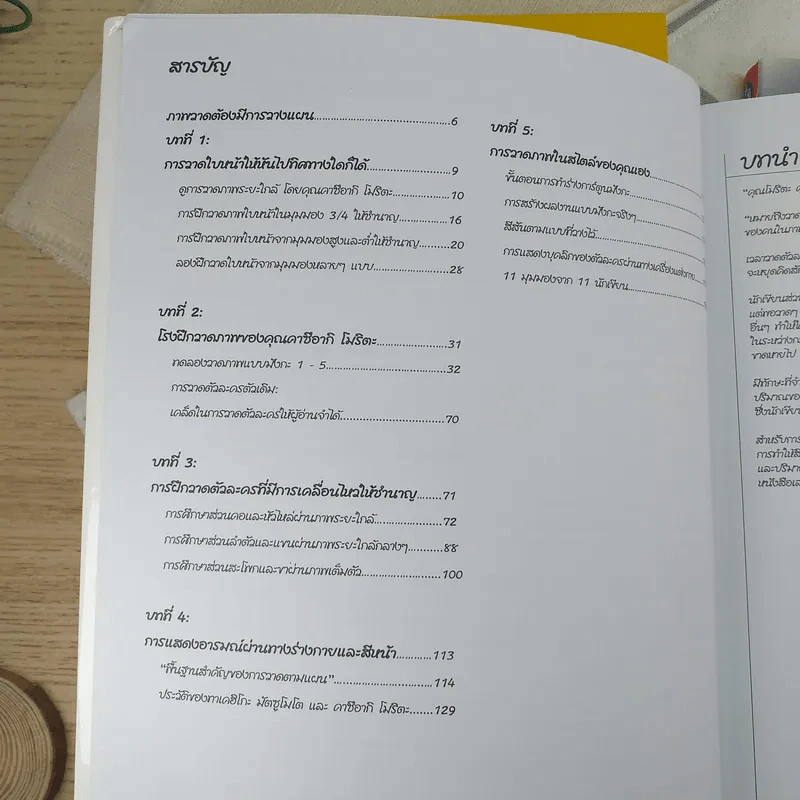 สารบัญ
ภาพวาดต้องมีการวางแผน.............................................6
บทที่ 1:
การวาดใบหน้าให้หันไปทิศทางใดก็ได้.........................9
ดูการวาดภาพระยะใกล้ โดยคุณคาซึอากิ โมริตะ................10
การฝึกวาดภาพใบหน้าในมุมมอง 3/4 ให้ชำนาญ...............16
การฝึกวาดภาพใบหน้าจากมุมมองสูงและต่ำให้ชำนาญ.......20
ลองฝึกวาดใบหน้าจากมุมมองหลายๆ แบบ.....................28
บทที่ 2:
โรงฝึกวาดภาพของคุณคาซึอากิ โมริตะ.......................31
ทดลองวาดภาพแบบมังกะ 1 - 5....................................32
การวาดตัวละครตัวเดิม:
เคล็ดในการวาดตัวละครให้ผู้อ่านจำได้..............................70
บทที่ 3:
การฝึกวาดตัวละครที่มีการเคลื่อนไหวให้ชำนาญ........71
การศึกษาส่วนคอและหัวไหล่ผ่านภาพระยะใกล้....................72
การศึกษาส่วนลำตัวและแขนผ่านภาพระยะใกล้กลางๆ...........88
การศึกษาส่วนสะโพกและขาผ่านภาพเต็มตัว.......................100
บทที่ 4:
การแสดงอารมณ์ผ่านทางร่างกายและสีหน้า............113
"พื้นฐานสำคัญของการวาดตามแผน"..............................114
ประวัติของทาเคฮิโกะ มัตซูโมโต และ คาซึอากิ โมริตะ.......129
บทที่ 5:
การวาดภาพในสไตล์ของคุณเอง
ขั้นตอนการทำร่างการ์ตูนมังกะ
การสร้างผลงานแบบมังกะจริงๆ
สีสันตามแบบที่วางไว้
การแสดงบุคลิกของตัวละครผ่านทางเครื่องแต่งกาย
11 มุมมองจาก 11 นักเขียน
บทนำ
"คุณโมริตะ
"หมายถึงวาด
ของคนในภา
เวลาวาดตัวล
จะหยุดคิดสัก
นักเขียนส่วน
แต่พอวาดๆ
อื่นๆ ทำให้
ในระหว่างก
ขาดหายไป
มีทักษะที่จำ
ปริมาณของ
ซึ่งนักเขียน
สำหรับการ
การทำให้สี
และปริมา
หนังสือเล